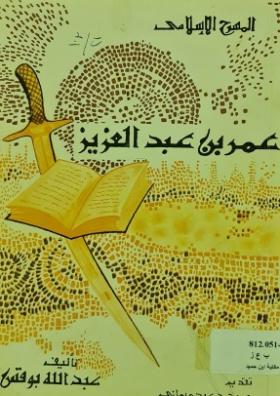 المسرح الإسلامى
عمر بن عبد العزيز
تأليف
عبد الله بوقس
812.051
ب ع ز
تقديم